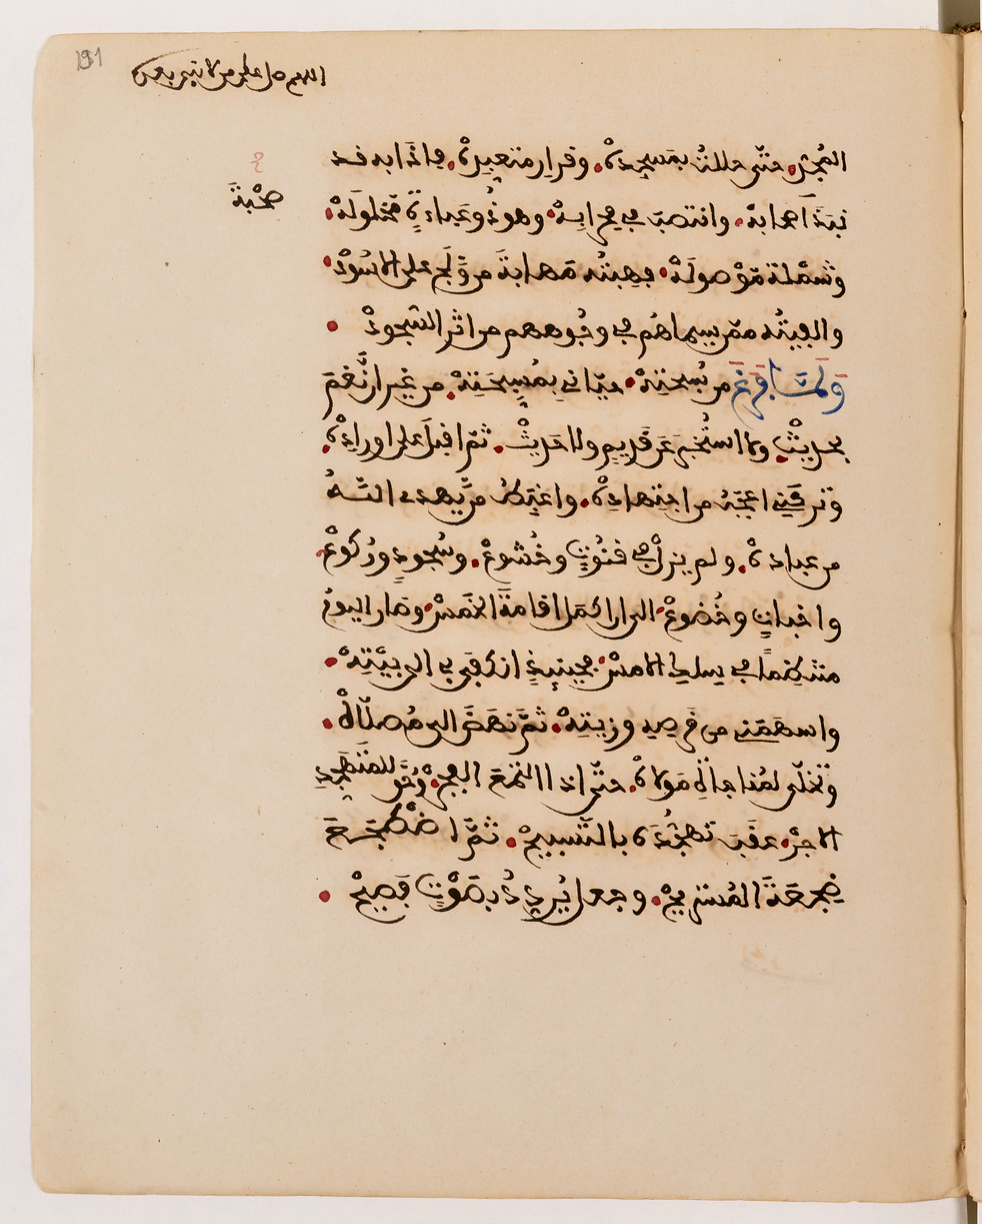 191
اللهم صل على من لا نبي بعده
المُجِدِّ. حتّى حللتُ بمَسجِدِهْ. وقرارِ متعبِدِهْ. فإذا به قد
صُحْبَةَ
نبَذَ أصحابهْ. وانتصبَ في محرابِهْ. وهو ذُو عَباءةٍ مخلولَهْ.
وشَمْلة مَوْصولَهْ. فهِبتُه مَهابةَ من وَلَج على الاسُودْ.
والفيتُه ممّن سيماهُم في وجُوههم من اثر السّجودْ.
ولَمّا فرَغَ من سُبحتِهْ. حيّاني بمُسبِّحَتِهْ. من غير ان نَغَمَ
بحديثْ. ولا استُخبَرَ عَن قديمٍ ولا حديثْ. ثمّ اقبلَ على اورادِهْ.
وتركَني اعجَبُ من اجتِهادِهْ. واغبِطُ من يهدي اللّهُ
من عبادهْ. ولم يزلْ في قنُوتٍ وخُشوعْ. وسُجودٍ ورُكوعْ.
واخباتٍ وخُضوعْ. الى ان اكمَل اقامةَ الخَمسْ. وصار اليومُ
امسْ. فحينئِذٍ انكفى بي الى بيْتِهْ.
واسهَمَني من قُرصِهِ وزيتِهْ. ثمّ نهَضَ الى مُصلّاهْ.
وتخلّى لمُناجاةِ مَولاهْ. حتّى اذا التمَعَ الفجرْ. وحُقّ للمتهَجِّدِ
الاجرْ. عقَبَ تهجُّدَهُ بالتّسبيحْ. ثمّ اضْطجَعَ
ضِجعَةَ المُستريحْ. وجعل يُرجِّعُ بصَوْتٍ فصيحْ.